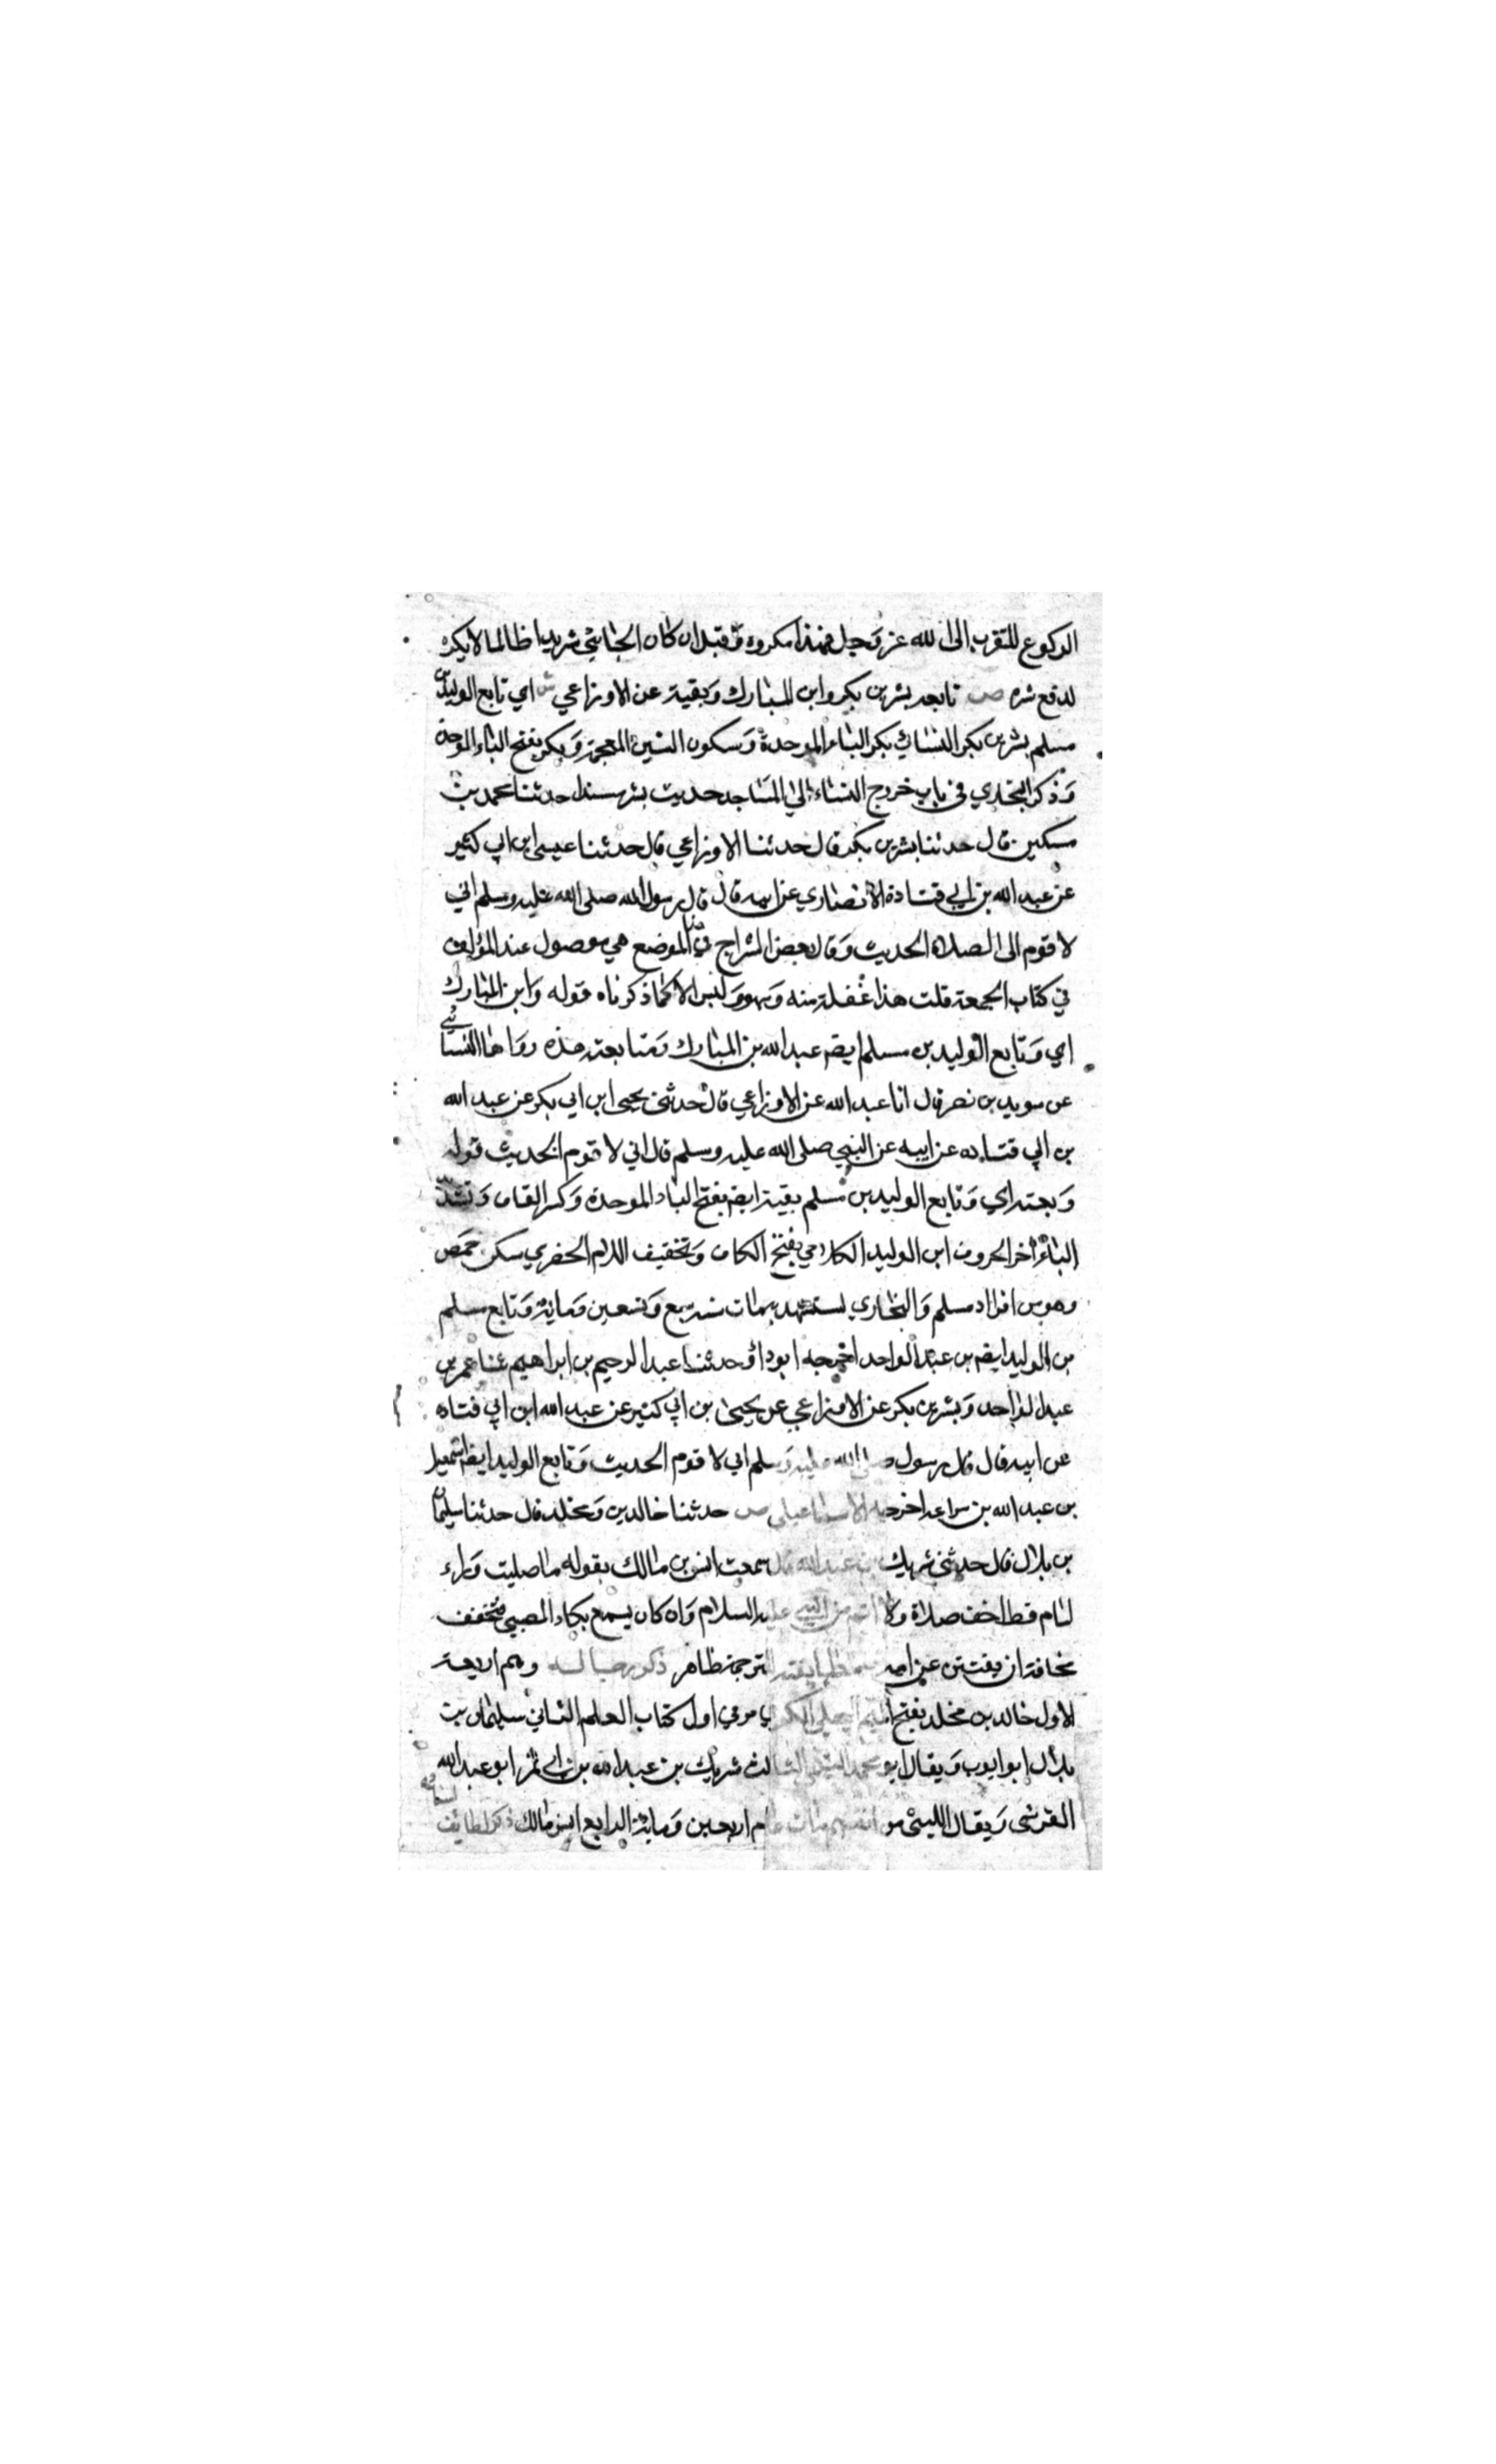 الركوع للتقرب الى الله عز وجل فهذا مكروه وقيل ان كان الجاني شريدا ظالما لا يكره
لدفع شره ص تابعه بشر بن بكر وابن المبارك وبقية عن الاوزاعي ش اي تابع الوليد بن
مسلم بشر بن بكر بكسر الباء الموحدة وسكون الشين المعجمة وبكر بفتح الباء الموحدة
وذكر البخاري في باب خروج النساء الي المساجد حديث بشر مسندا حدثنا محمد بن
مسكين قال حدثنا بشر بن بكر قال حدثنا الاوزاعي قال حدثنا عيسى ابن ابي كثير
عن عبد الله بن ابي قتادة الانصاري عن ابيه قال قال رسول الله صلى الله عليه وسلم اني
لاقوم الى الصلاة الحديث وقال بعض الشراح في هذا الموضع هي موصول عند المؤلف
في كتاب الجمعة قلت هذا غفلة منه وسهو وليس الا كما ذكرناه قوله وابن المبارك
اي وتابع الوليد بن مسلم ايضه عبد الله بن المبارك ومتابعته هذه رواها النسائي
عن سويد بن نصر قال انا عبد الله عن الاوزاعي قال حدثني يحيى ابن ابي بكر عن عبد الله
بن ابي قتاده عن ابيه عن النبي صلى الله عليه وسلم قال اني لاقوم الحديث قوله
وبقية اي وتابع الوليد بن مسلم بقية ايضه بفتح الباء الموحدة وكسر القاف وتشد
الياء آخر الحروف ابن الوليد الكلاعي بفتح الكاف وتخفيف اللام الحضري سكن حمص
وهو من افراد مسلم والبخاري يستشهد به مات سنة سبع وتسعين ومائة وتابع مسلم
بن الوليد ايضه بن عبد الواحد اخرجه ابو داؤد حدثنا عبد الرحيم بن ابراهيم عن عمر بن
عبد الواحد وبشر بن بكر عن الاوزاعي عن يحيى بن ابي كثير عن عبد الله ابن ابي قتاده
عن ابيه قال قال رسول صلى الله عليه وسلم اني لاقوم الحديث وتابع الوليد ايضه اسمعيل
بن عبد الله بن سماعه اخرجه الاسماعيلي ص حدثنا خالد بن ومخلد قال حدثنا سليمان
بن بلال قال حدثني شريك بن عبد الله قال سمعت انس بن مالك يقوله ما صليت وراء
امام قط اخف صلاة ولا اتم من النبي عليه السلام وان كان يسمع بكاء الصبي فيخفف
مخافة ان يفتتن عن امه للترجمة ظاهر ذكر رجاله وهم اربعة
الاول خالد بن مخلد بفتح الميم البجلي الكوفي مر في اول كتاب العلم الثاني سليمان بن
بلال ابو ايوب ويقال ابو محمد الثالث شريك بن عبد الله بن ابي نمر ابو عبد الله
القرشي ويقال الليثي من انفسهم مات عام اربعين ومائة الرابع انس بن مالك ذكر لطائف